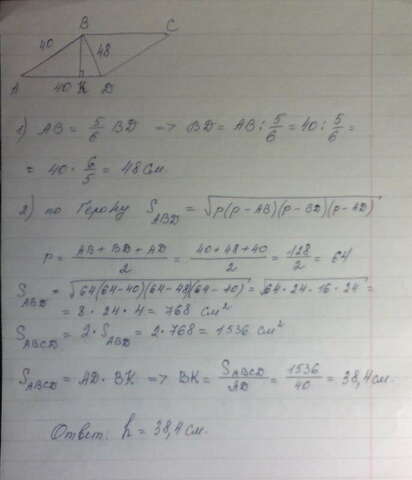 B
C
40
48
A
40
K
D
1) AB = 5/6 BD → BD = AB : 5/6 = 40 : 5/6 =
= 40 · 6/5 = 48 см.
2) по Герону S_ABD = √p(p-AB)(p-BD)(p-AD)
P = AB+BD+AD/2 = 40+48+40/2 = 128/2 = 64
S_ABD = √64(64-40)(64-48)(64-40) = √64·24·16·24 =
= 8·24·4 = 768 см²
S_ABCD = 2·S_ABD = 2·768 = 1536 см²
S_ABCD = AD·BK => BK = S_ABCD/AD = 1536/40 = 38,4 см.
Ответ: h = 38,4 см.